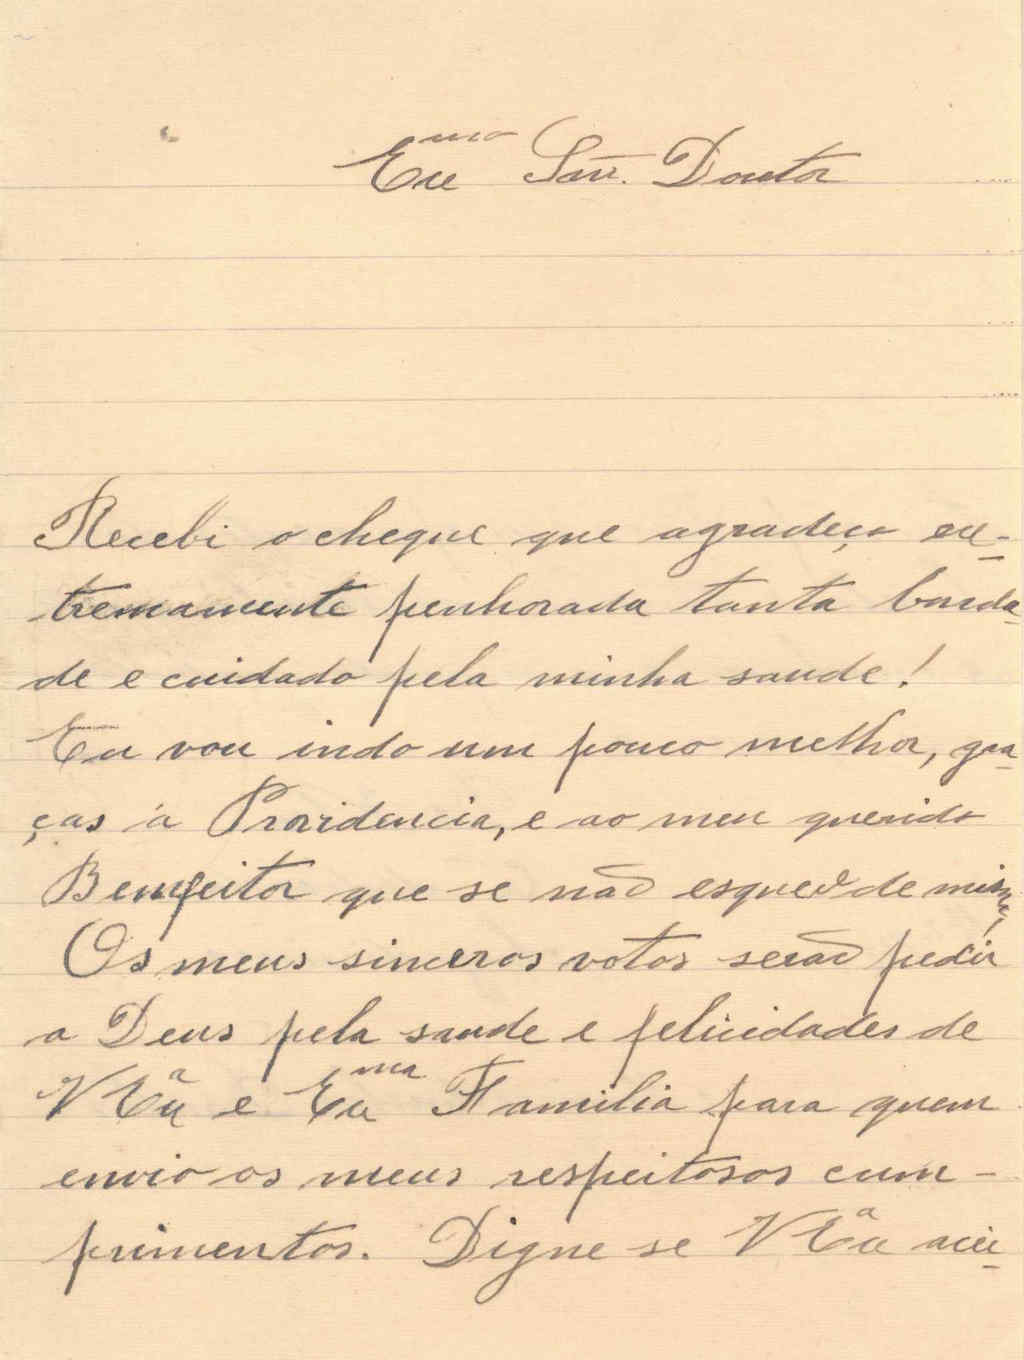 Exmo Snr. Doutor
Recebi o cheque que agradeço ex-
tremamente penhorada tanta bonda-
de e cuidado pela minha saude!
Eu vou indo um pouco melhor, gra-
ças á Providencia, e ao meu querido
Bemfeitor que se não esquece de mim,
Os meus sinceros votos serão pedir
a Deus pela saude e felicidades de
V Exª e Exma Familia para quem
envio os meus respeitosos cum-
primentos. Digne se V Exª acei-